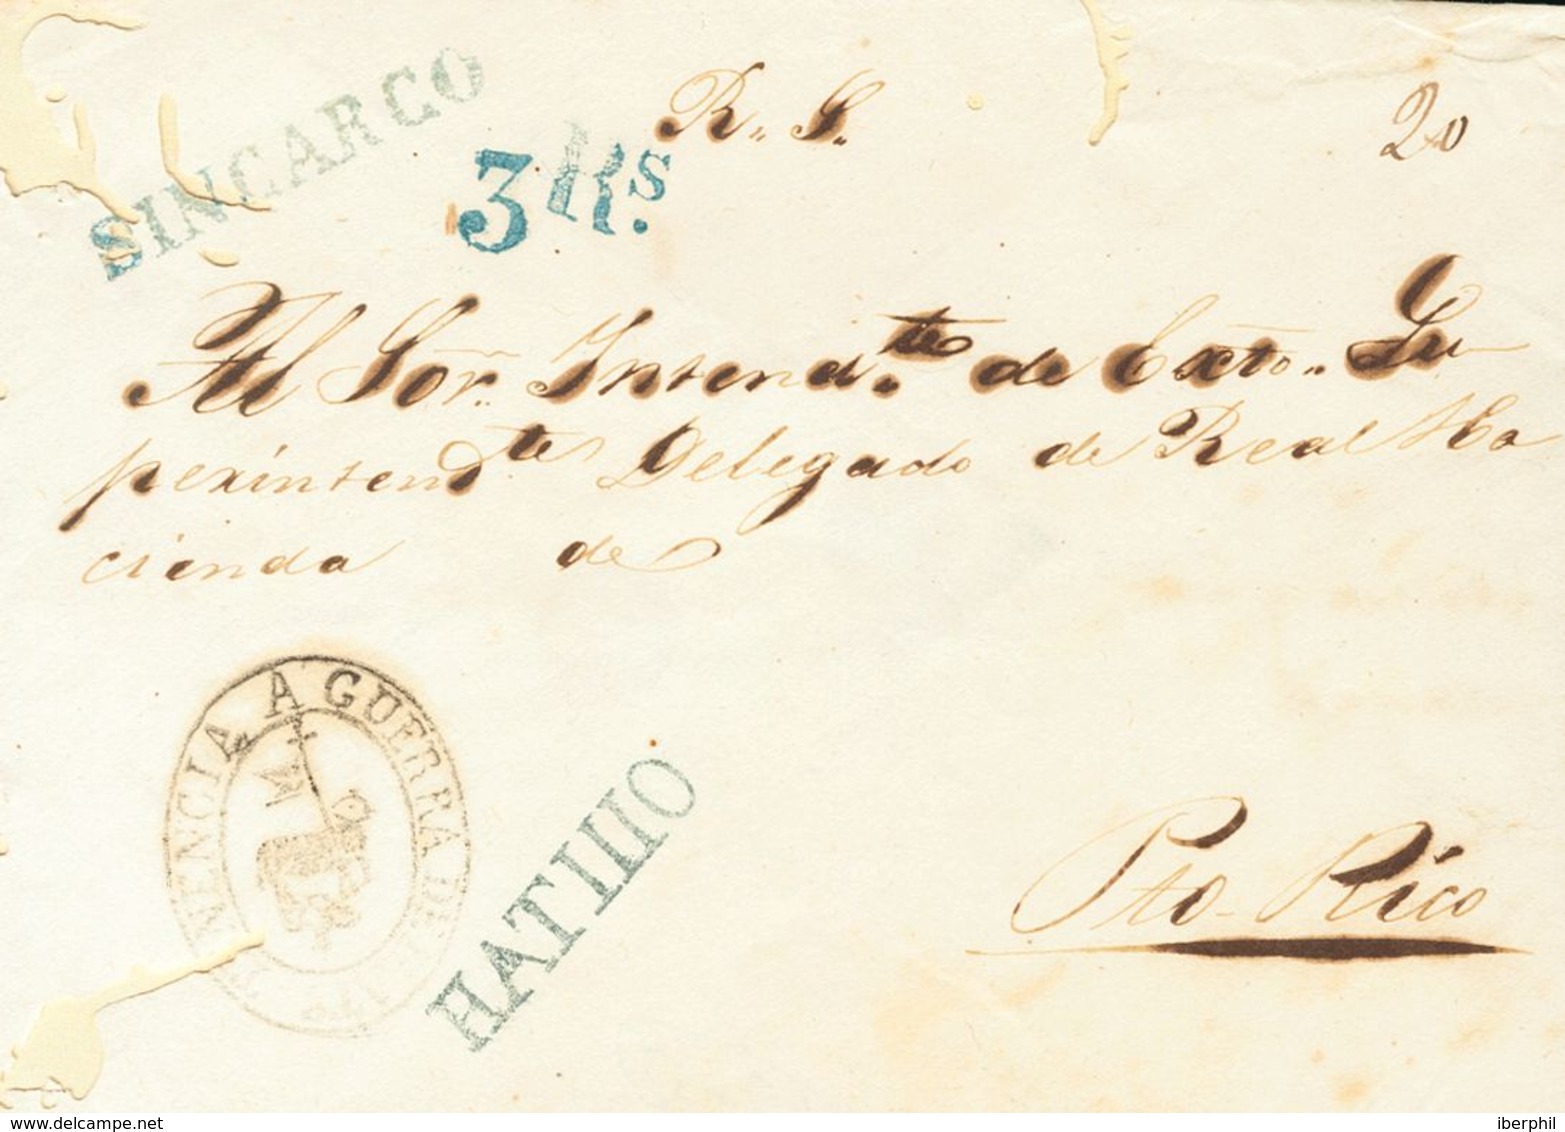 SINCARGO
3 Rs.
R. S.
20
Al Sor. Intend.te de Exto. Su
perintendte Delegado de Real Ha
cienda de
NENCIA A GUERRA DE
HATIIIO
Pto. Rico
www.delcampe.net
iberphil